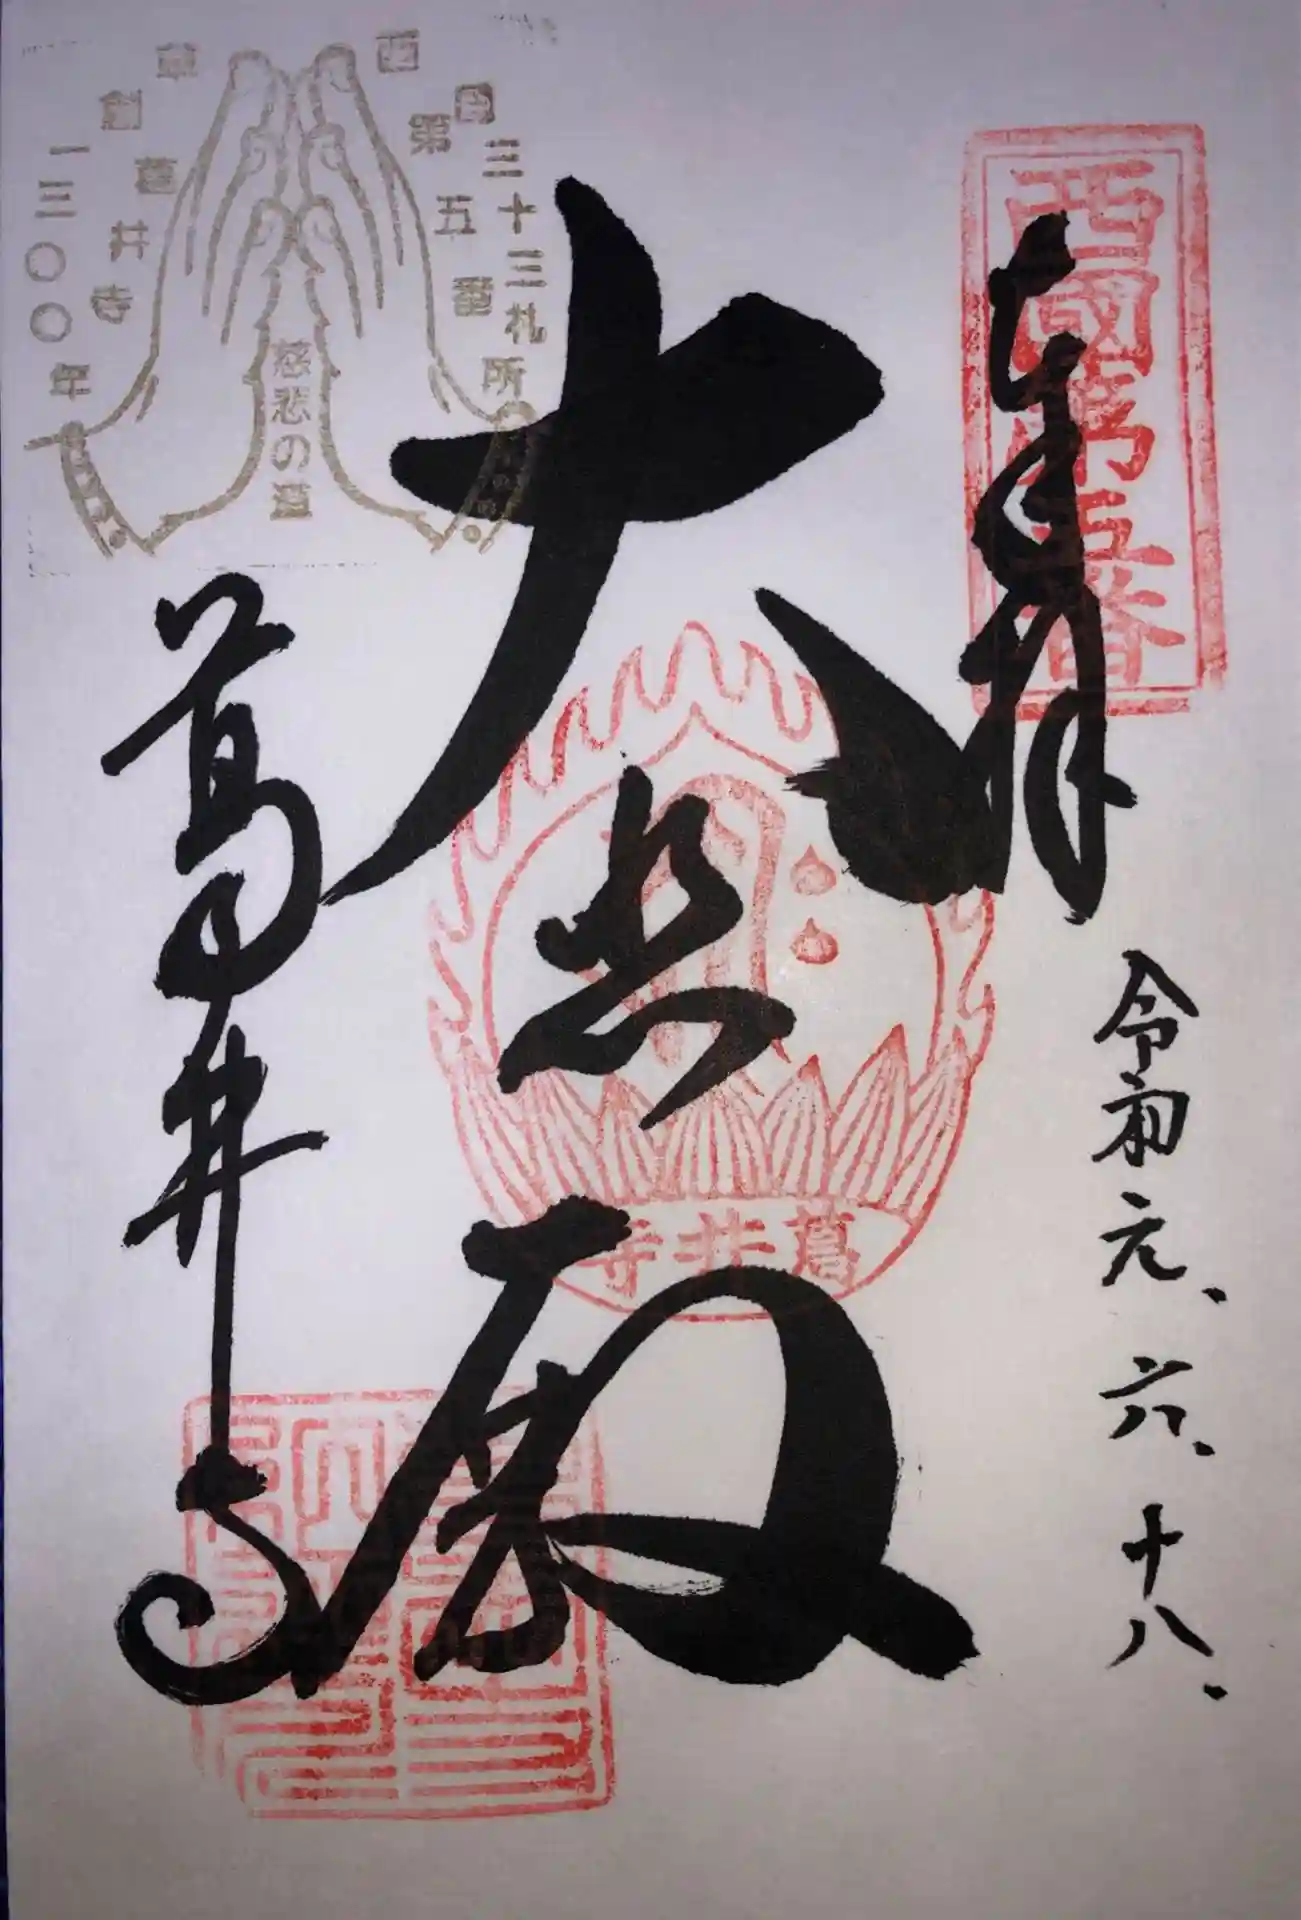 奉拝
西國第五番
令和元、六、十八、
大悲殿
葛井寺
葛井寺
西国三十三札所
第五番
葛井寺
草創一三〇〇年
慈悲の道